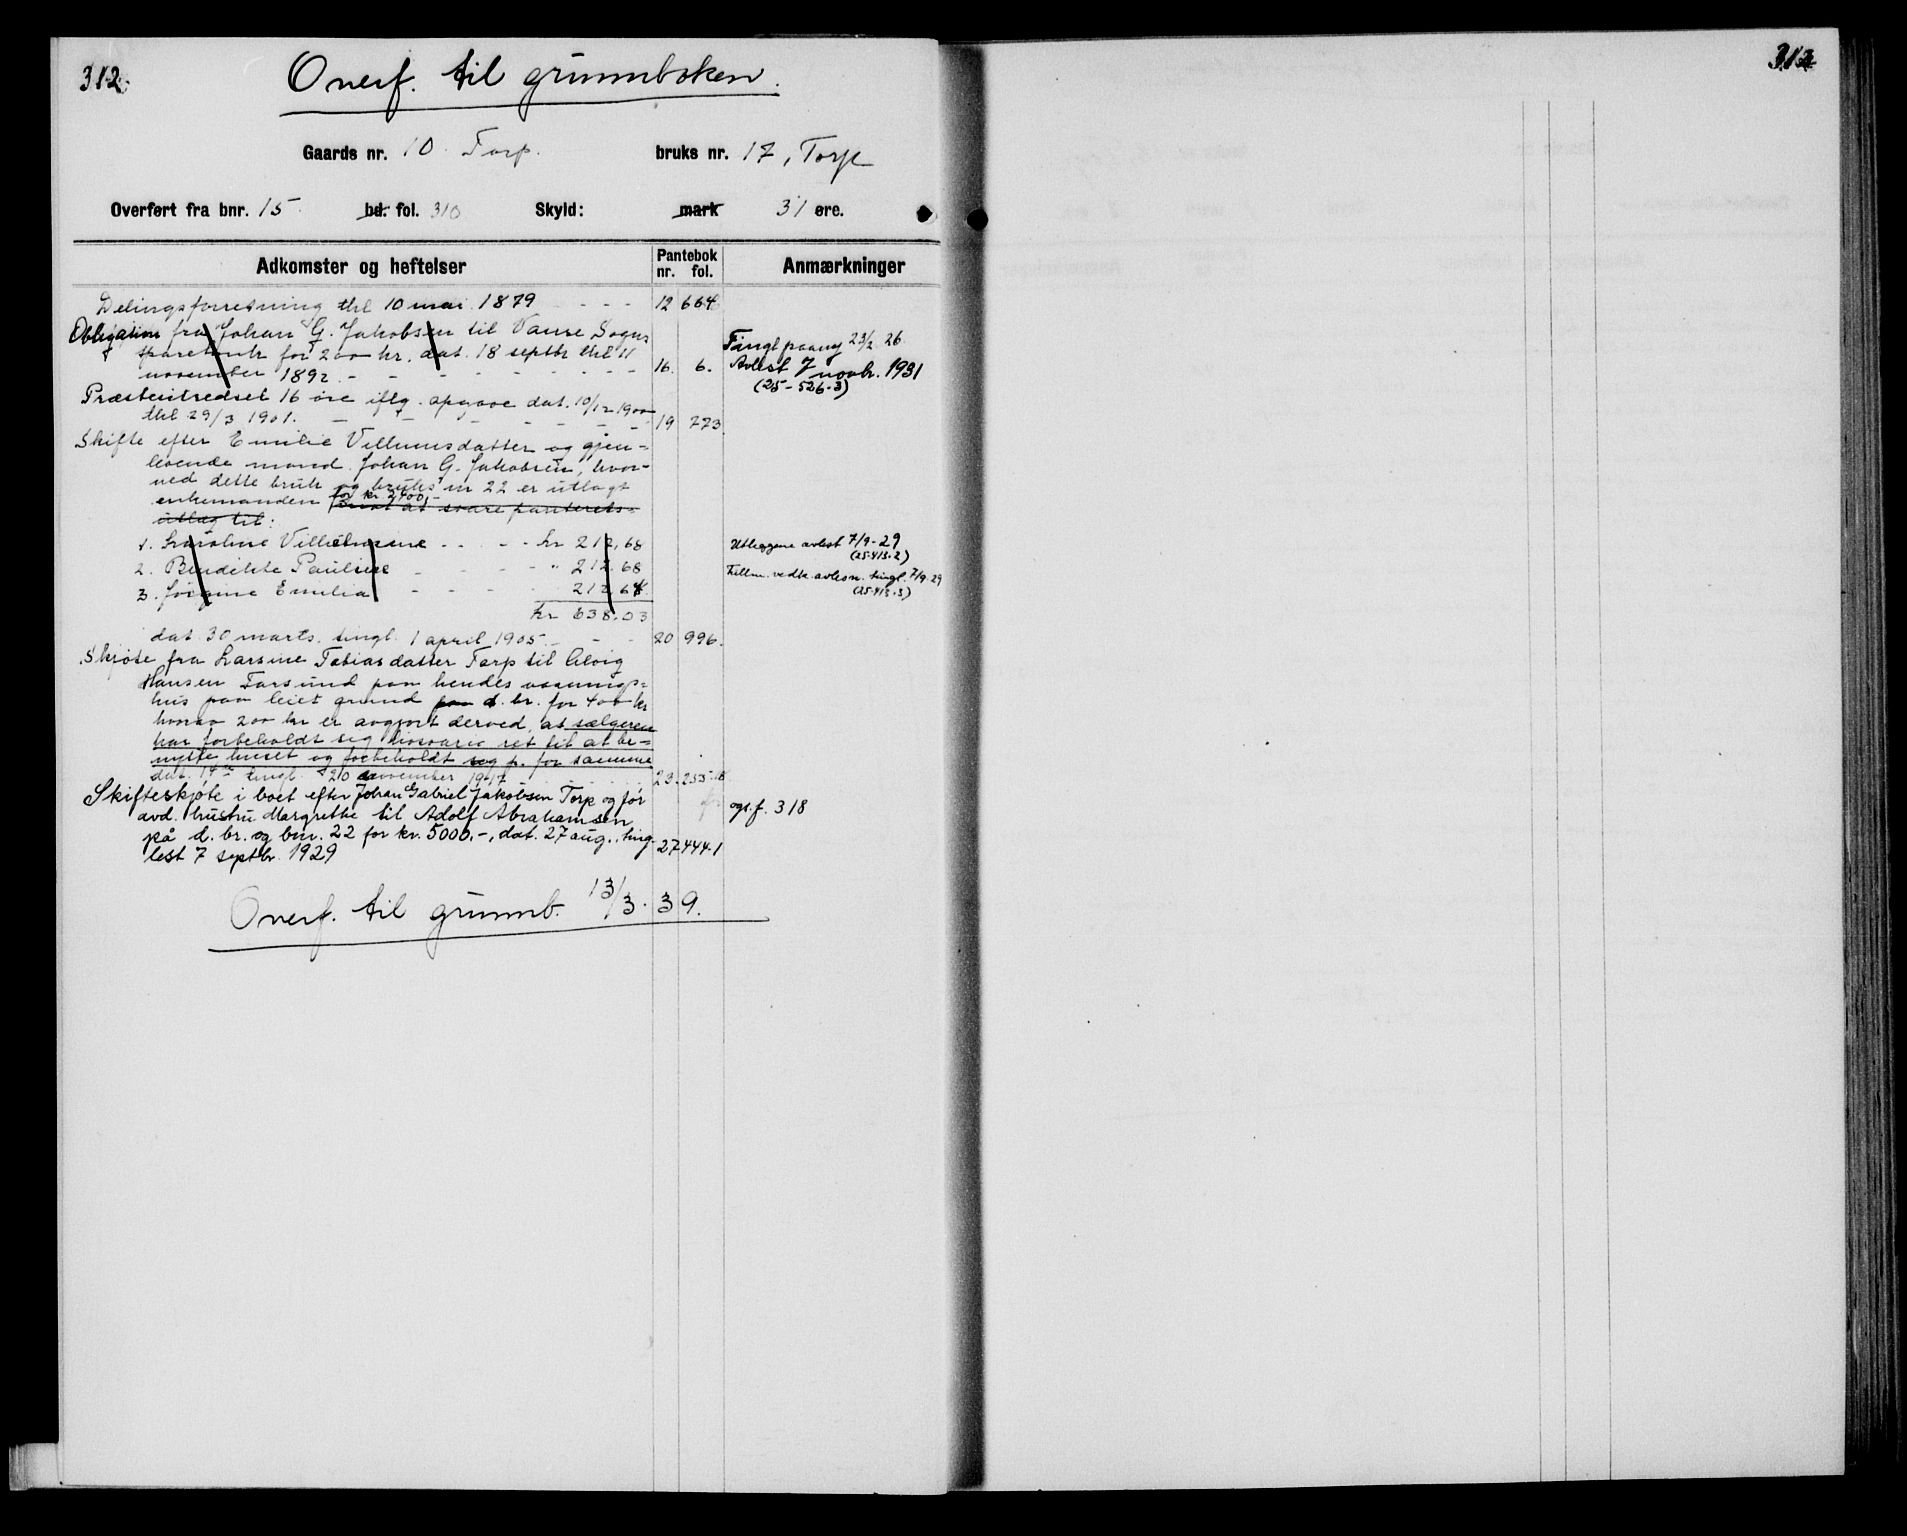 312.
Overf. til grunnboken.
Gaards nr. 10 Torp. bruks nr. 17, Torp
Overført fra bnr. 15. bd. fol. 310 Skyld: mark 31 øre.
Adkomster og heftelser Pantebok nr. fol. Anmærkninger
Delingsforretning thl 10 mai 1879 - - - 12 664
Obligation fra Johan G. Jakobsen til Vanse Sogns
sparebank for 200 kr. dat. 18 septbr thl 11 Tingl paany 23/2 26
november 1892. - - - - - - - 16. 6. Avlest 7 novbr. 1931
(25-526-3)
Præsteintredset 16 øre iflg. opgave dat. 10/12 1900
thl 29/3 1901. - - - - - - 19 773.
Skifte efter Emilie Villumsdatter og gjen-
levende mand Johan G. Jakobsen, hvor-
ved dette bruk og bruks nr 22 er utlagt
enkemanden for kr 2400,- mot at svare panterets-
utlæg til:
1. Karoline Villumsene - - - kr 212,68 Utleggene avlest 7/9-29
(25-413-2)
2. Bendikte Pauline - - - " 212.68 Fullm. vedk. avlesn. tingl. 7/9-29
3. Jørgine Emilia - - - 212.68 (25-413-3)
kr 638.03
dat 30 marts, tingl. 1 april 1905 - - - 20 996.
Skjøte fra Larsine Tobiasdatter Torp til Alvig
Hansen Farsund paa hendes vaanings-
hus paa leiet grund paa d. br. for 400 kr
hvorav 200 kr er avgjort derved, at sælgeren
har forbeholdt sig livsvarig ret til at be-
nytte huset og forbeholdt sig p. for samme
dat. 14de tingl. 20 november 1917 23. 255-18
Skifteskjøte i boet efter Johan Gabriel Jakobsen Torp og før ogs. f. 318
avd. hustru Margrethe til Adolf Abrahamsen
på d. br. og bnr. 22 for kr. 5000,-, dat. 27 aug., ting-
lest 7 septbr. 1929 27 444-1
Overf. til grunnb. 13/3. 39.
313